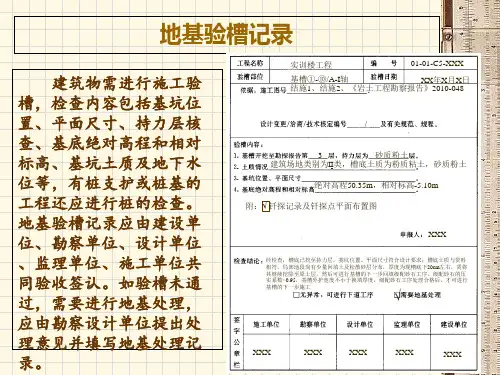 地基验槽记录
建筑物需进行施工验
槽，检查内容包括基坑位
置、平面尺寸、持力层核
查、基底绝对高程和相对
标高、基坑土质及地下水
位等，有桩支护或桩基的
工程还应进行桩的检查。
地基验槽记录应由建设单
位、勘察单位、设计单位
、监理单位、施工单位共
同验收签认。如验槽未通
过，需要进行地基处理，
应由勘察设计单位提出处
理意见并填写地基处理记
录。
工程名称 实训楼工程 编 号 01-01-C5-XXX
验槽部位 基槽①-⑩/A-I轴 验槽日期 XX年X月X日
依据：施工图号 结施1、结施2、《岩土工程勘察报告》2010-048
设计变更/洽商/技术核定编号 / 及有关规范、规程。
验槽内容：
1. 基槽开挖至勘探报告第 3 层，持力层为 砂质粉土层。
2. 土质情况 建筑场地类别为Ⅱ类，槽底土质为粉质粘土，砂质粉土
3. 基坑位置、平面尺寸
4. 基底绝对高程和相对标高 绝对高程50.35m，相对标高-5.10m
附：√钎探记录及钎探点平面布置图
申报人： XXX
检查结论：
□无异常，可进行下道工序 √需要地基处理
签字公章栏 施工单位 勘察单位 设计单位 监理单位 建设单位
XXX XXX XXX XXX XXX